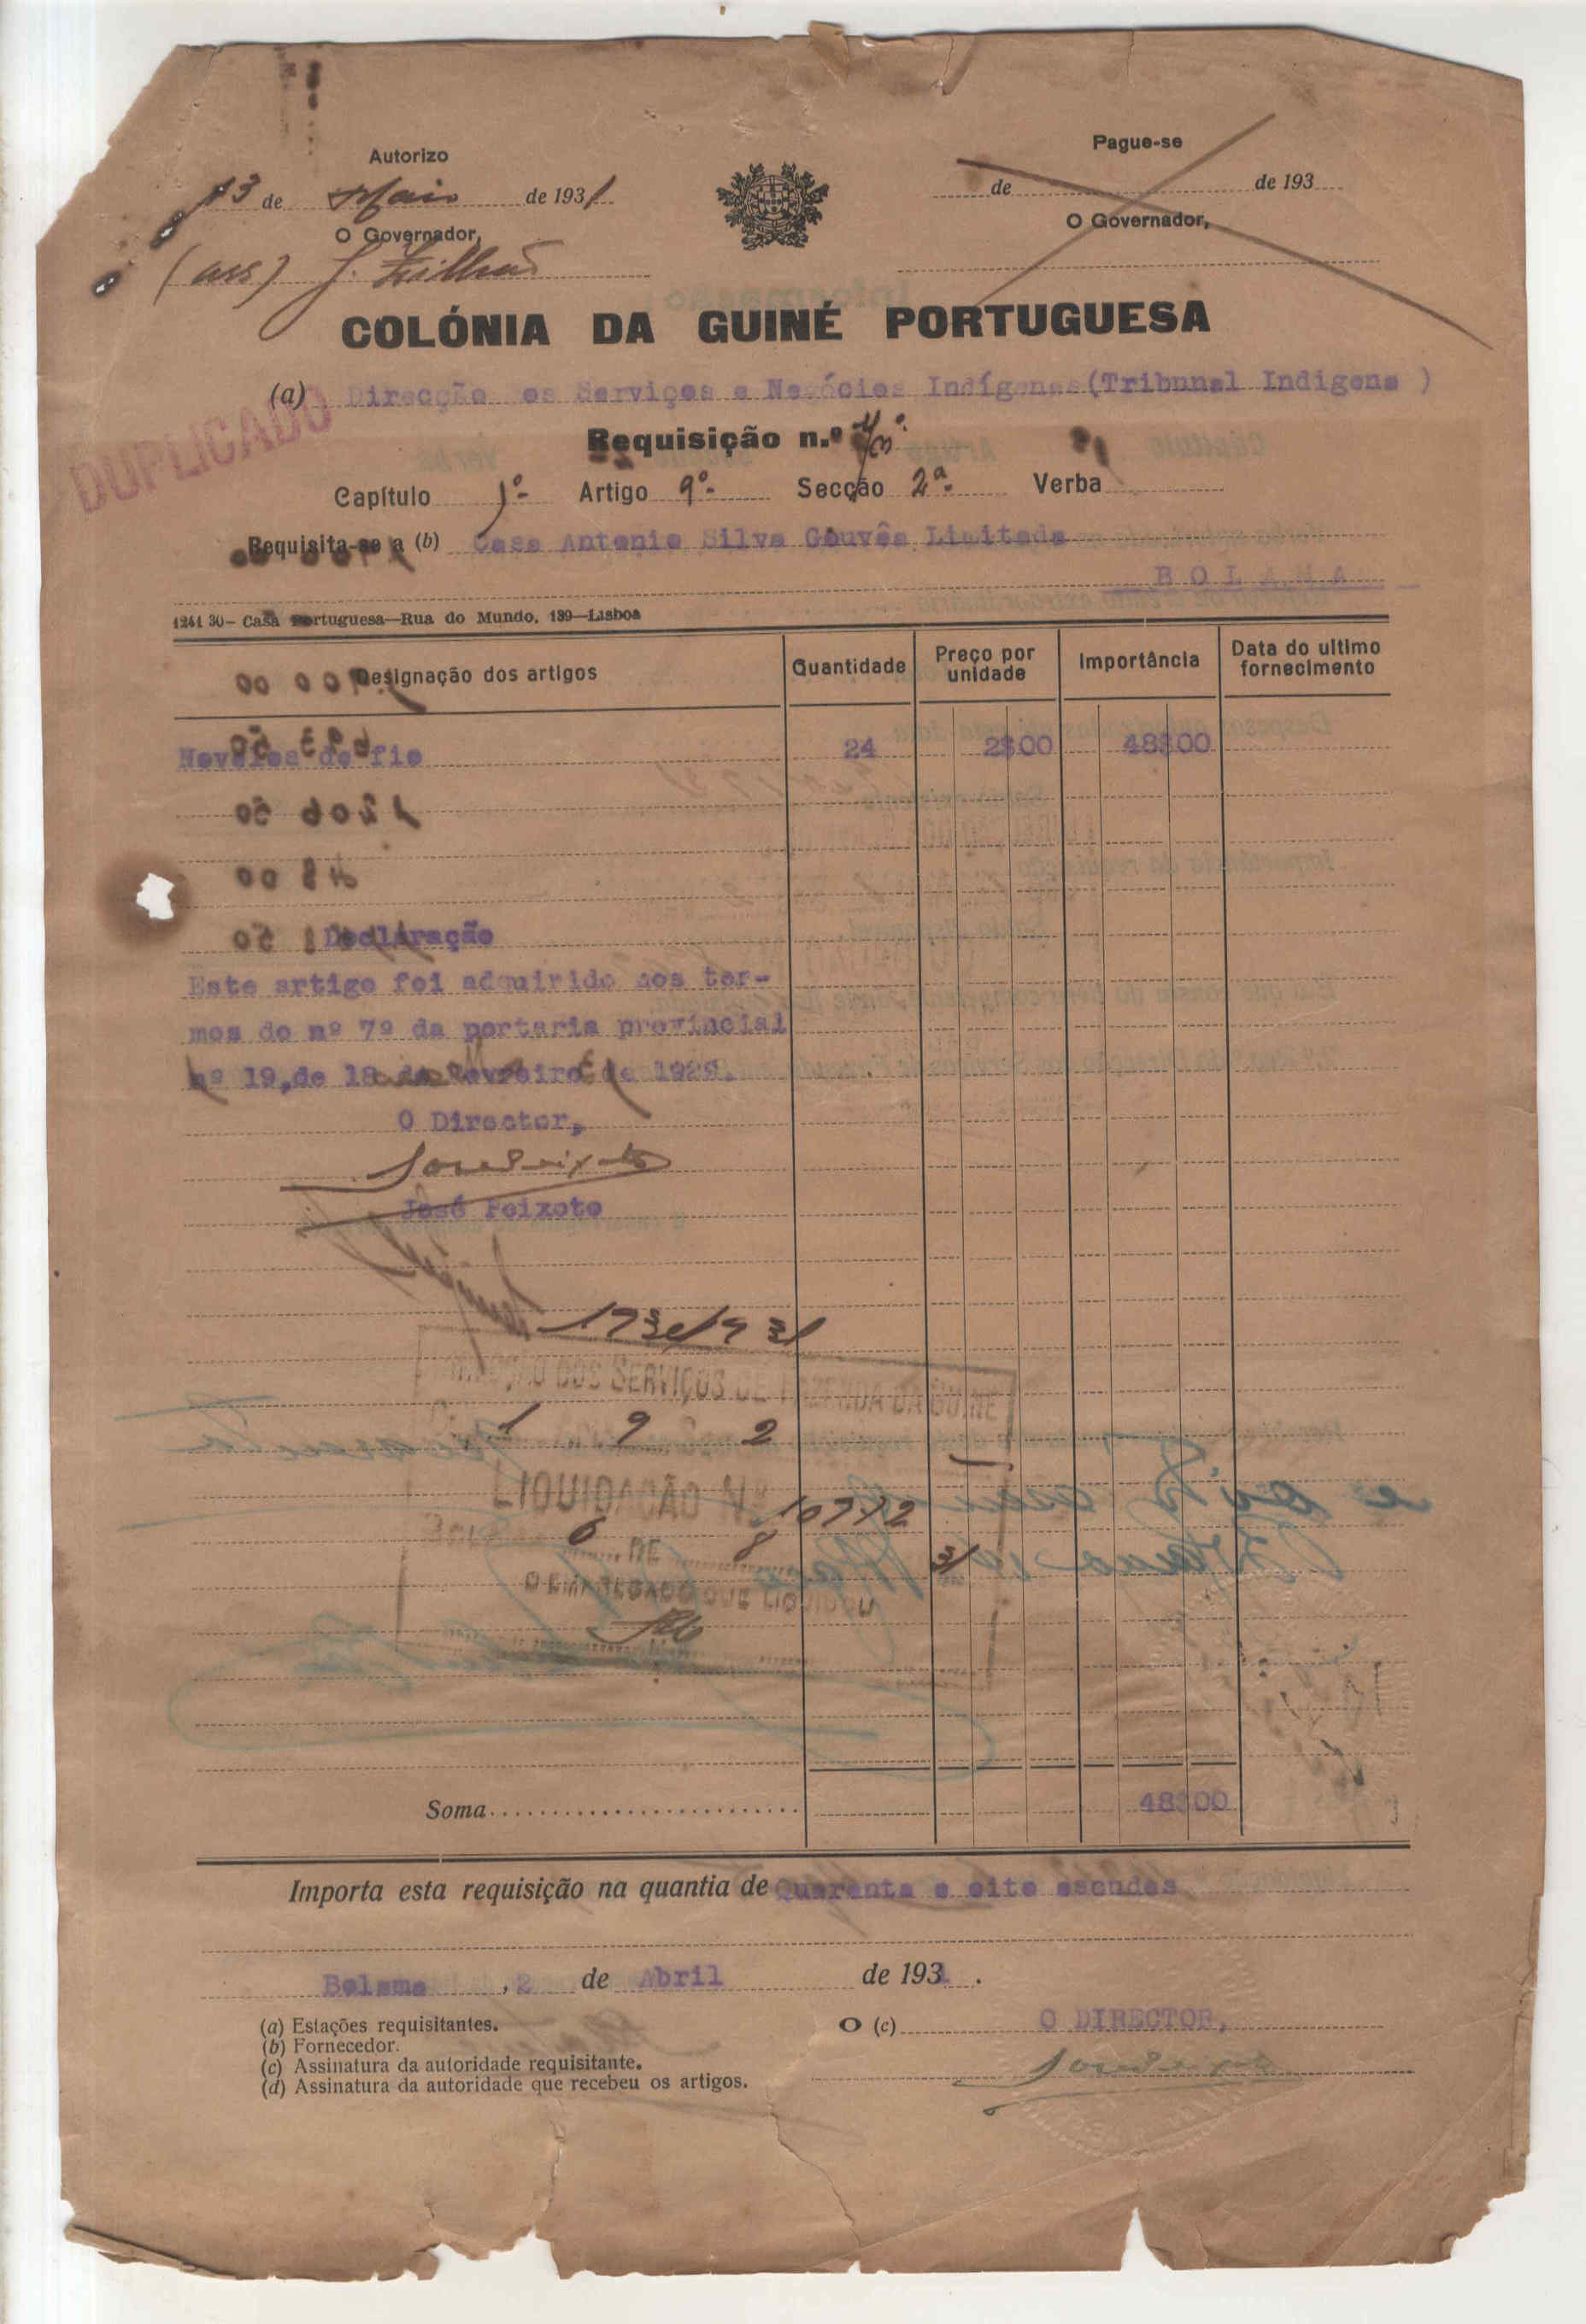 Autorizo
13 de Maio de 1931
O Governador,
(ass) J.
Pague-se
de de 193
O Governador,
COLÓNIA DA GUINÉ PORTUGUESA
(a) Direcção os Serviços e Negócios Indígenas (Tribunal Indigena )
DUPLICADO
Requisição n.º
Capítulo 1º Artigo 9º Secção 2ª Verba
Requisita-se a (b) Casa Antonio Silva Gouvêa Limitada
BOLAMA
1241 30- Casa Portuguesa—Rua do Mundo, 139—Lisboa
Designação dos artigos Quantidade Preço por unidade Importância Data do ultimo fornecimento
Novelos de fio 24 2$00 48$00
Declaração
Este artigo foi adquirido nos ter-
mos do nº 7º da portaria provincial
nº 19, de 18 de Fevreiro de 1929.
O Director,
José Peixoto
DIRECÇÃO DOS SERVIÇOS DE FAZENDA DA GUINÉ
1 9 2
LIQUIDAÇÃO Nº 10772
6 DE 8 31
O EMPREGADO QUE LIQUIDOU
Soma 48$00
Importa esta requisição na quantia de Quarenta e oito escudos
Bolama, 2 de Abril de 1931.
(a) Estações requisitantes.
(b) Fornecedor.
(c) Assinatura da autoridade requisitante.
(d) Assinatura da autoridade que recebeu os artigos.
O (c) O DIRECTOR,